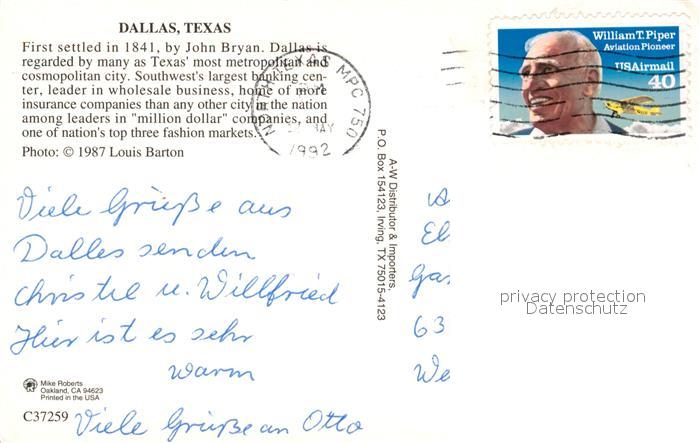 DALLAS, TEXAS
First settled in 1841, by John Bryan. Dallas is
regarded by many as Texas' most metropolitan and
cosmopolitan city. Southwest's largest banking cen-
ter, leader in wholesale business, home of more
insurance companies than any other city in the nation
among leaders in "million dollar" companies, and
one of nation's top three fashion markets.
Photo: © 1987 Louis Barton
NORTH TEXAS MPC 750
MAY
1992
William T. Piper
Aviation Pioneer
USAirmail
40
Viele Grüße aus
Dallas senden
Christel u. Willfried
Hier ist es sehr
warm
Viele Grüße an Otto
Mike Roberts
Oakland, CA 94623
Printed in the USA
C37259
A-W Distributor & Importers,
P.O. Box 154123, Irving, TX 75015-4123
El
Gas
63
We
privacy protection
Datenschutz